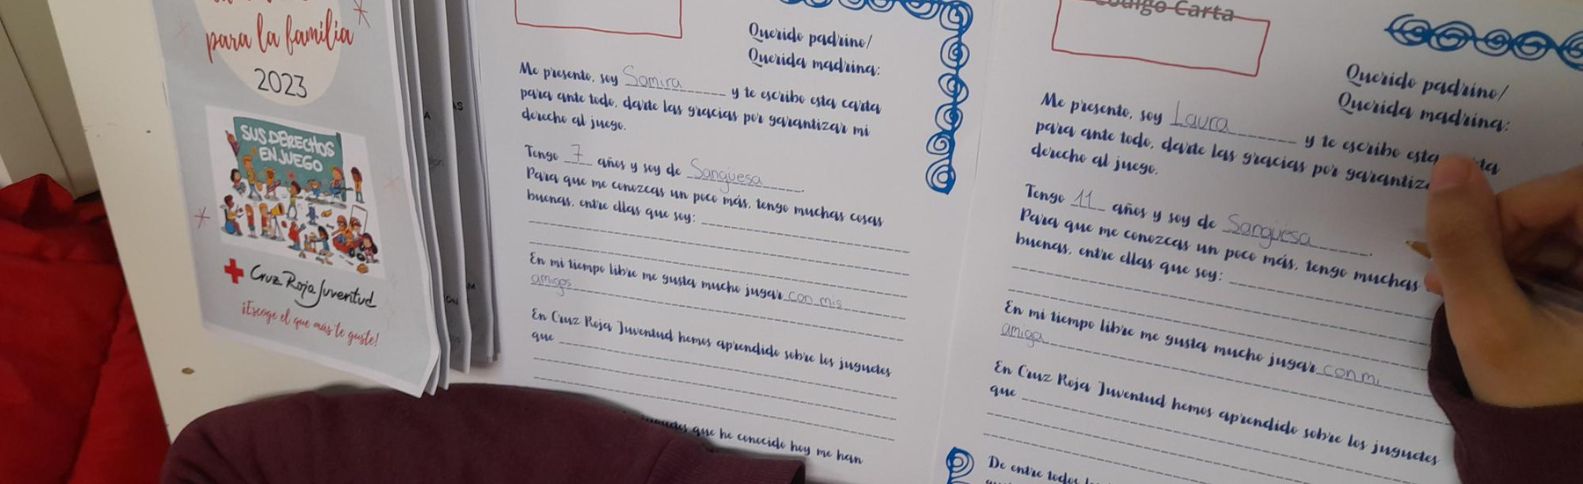 para la familia
2023
SUS DERECHOS
EN JUEGO
Cruz Roja Juventud
¡Escoge el que más te guste!
Querido padrino/
Querida madrina:
Me presento, soy Samira y te escribo esta carta
para ante todo, darte las gracias por garantizar mi
derecho al juego.
Tengo 7 años y soy de Sangüesa.
Para que me conozcas un poco más, tengo muchas cosas
buenas, entre ellas que soy:
En mi tiempo libre me gusta mucho jugar con mis
amigos
En Cruz Roja Juventud hemos aprendido sobre los juguetes
que
que he conocido hoy me han
Código Carta
Querido padrino/
Querida madrina:
Me presento, soy Laura y te escribo esta
para ante todo, darte las gracias por
derecho al juego.
Tengo 11 años y soy de Sangüesa.
Para que me conozcas un poco más, tengo muchas
buenas, entre ellas que soy:
En mi tiempo libre me gusta mucho jugar con mi
amiga
En Cruz Roja Juventud hemos aprendido sobre los juguetes
que
De entre todos